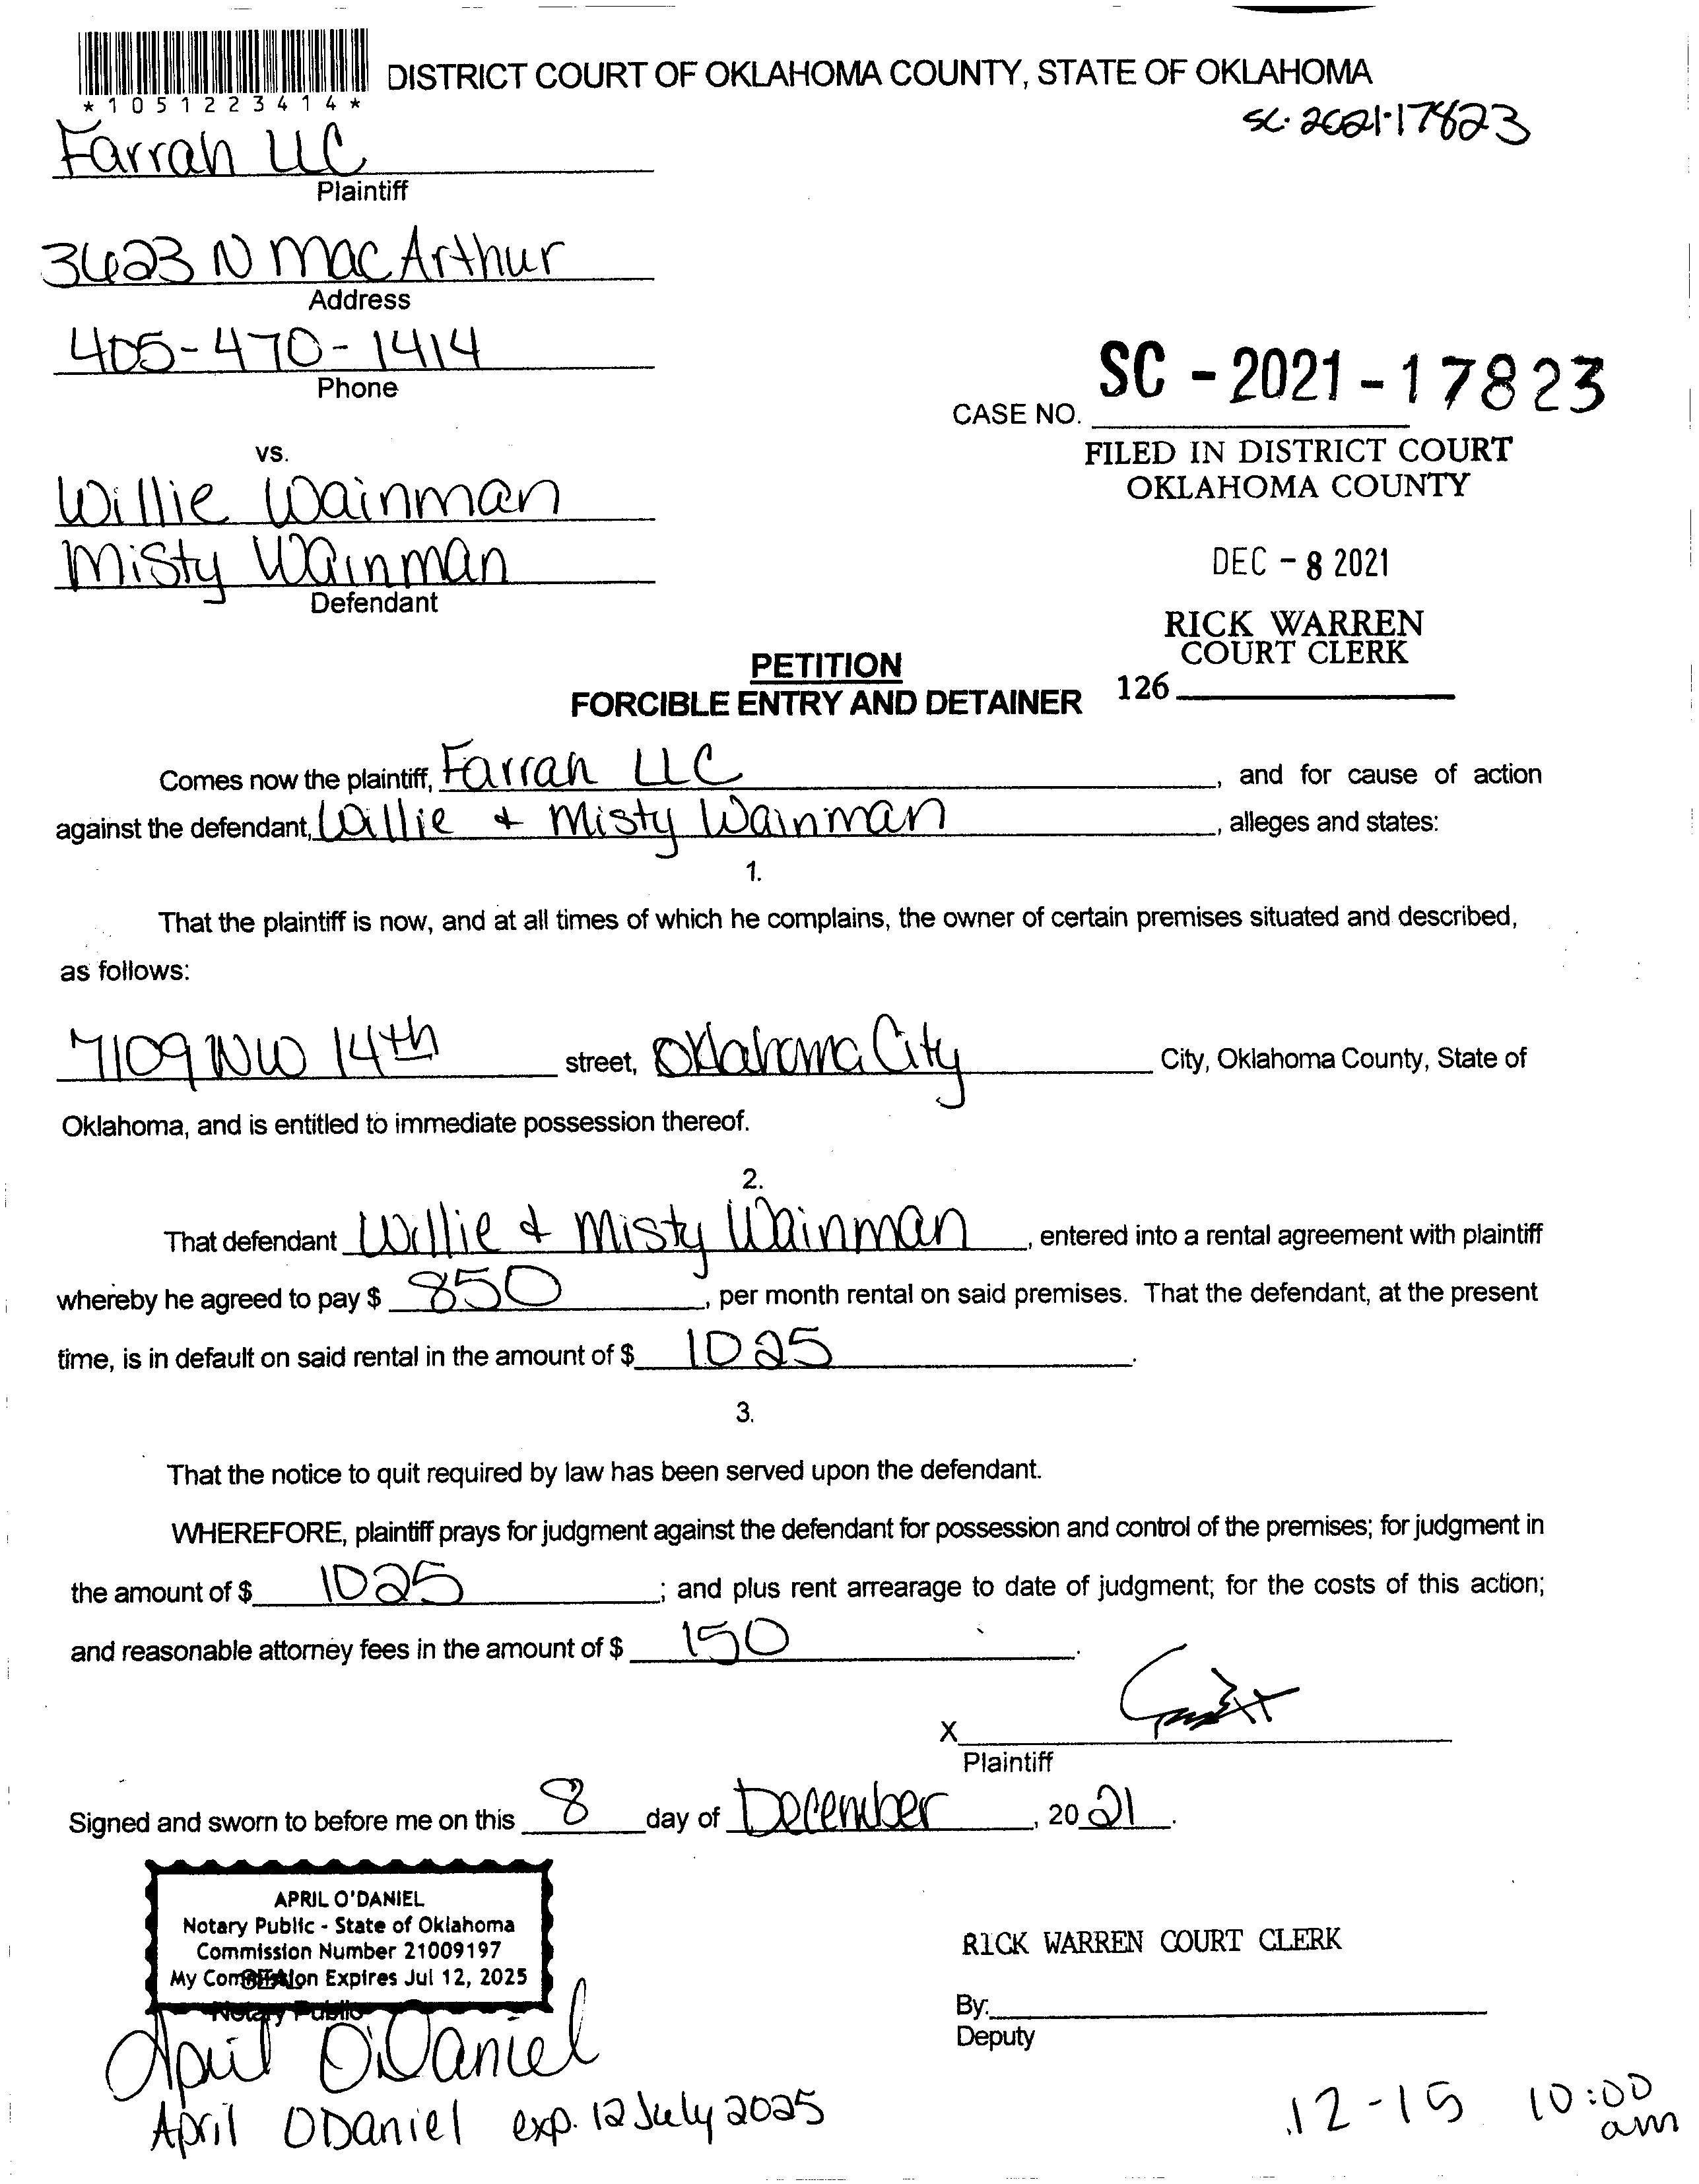 DISTRICT COURT OF OKLAHOMA COUNTY, STATE OF OKLAHOMA
*1051223414*
SC-2021-17823
Farrah LLC
Plaintiff
3623 N MacArthur
Address
405-470-1414
Phone
SC - 2021 - 17823
CASE NO.
FILED IN DISTRICT COURT
OKLAHOMA COUNTY
vs.
Willie Wainman
Misty Wainman
Defendant
DEC - 8 2021
RICK WARREN
COURT CLERK
126
PETITION
FORCIBLE ENTRY AND DETAINER
Comes now the plaintiff, Farrah LLC, and for cause of action
against the defendant, Willie & Misty Wainman, alleges and states:
1.
That the plaintiff is now, and at all times of which he complains, the owner of certain premises situated and described,
as follows:
7109 NW 14th street, Oklahoma City City, Oklahoma County, State of
Oklahoma, and is entitled to immediate possession thereof.
2.
That defendant Willie & Misty Wainman, entered into a rental agreement with plaintiff
whereby he agreed to pay $ 850, per month rental on said premises. That the defendant, at the present
time, is in default on said rental in the amount of $ 1025.
3.
That the notice to quit required by law has been served upon the defendant.
WHEREFORE, plaintiff prays for judgment against the defendant for possession and control of the premises; for judgment in
the amount of $ 1025; and plus rent arrearage to date of judgment; for the costs of this action;
and reasonable attorney fees in the amount of $ 150.
X
Plaintiff
Signed and sworn to before me on this 8 day of December, 2021.
APRIL O'DANIEL
Notary Public - State of Oklahoma
Commission Number 21009197
My Commission Expires Jul 12, 2025
SEAL
Notary Public
RICK WARREN COURT CLERK
By:
Deputy
April O'Daniel
April ODaniel exp. 12 July 2025
12-15 10:00
am